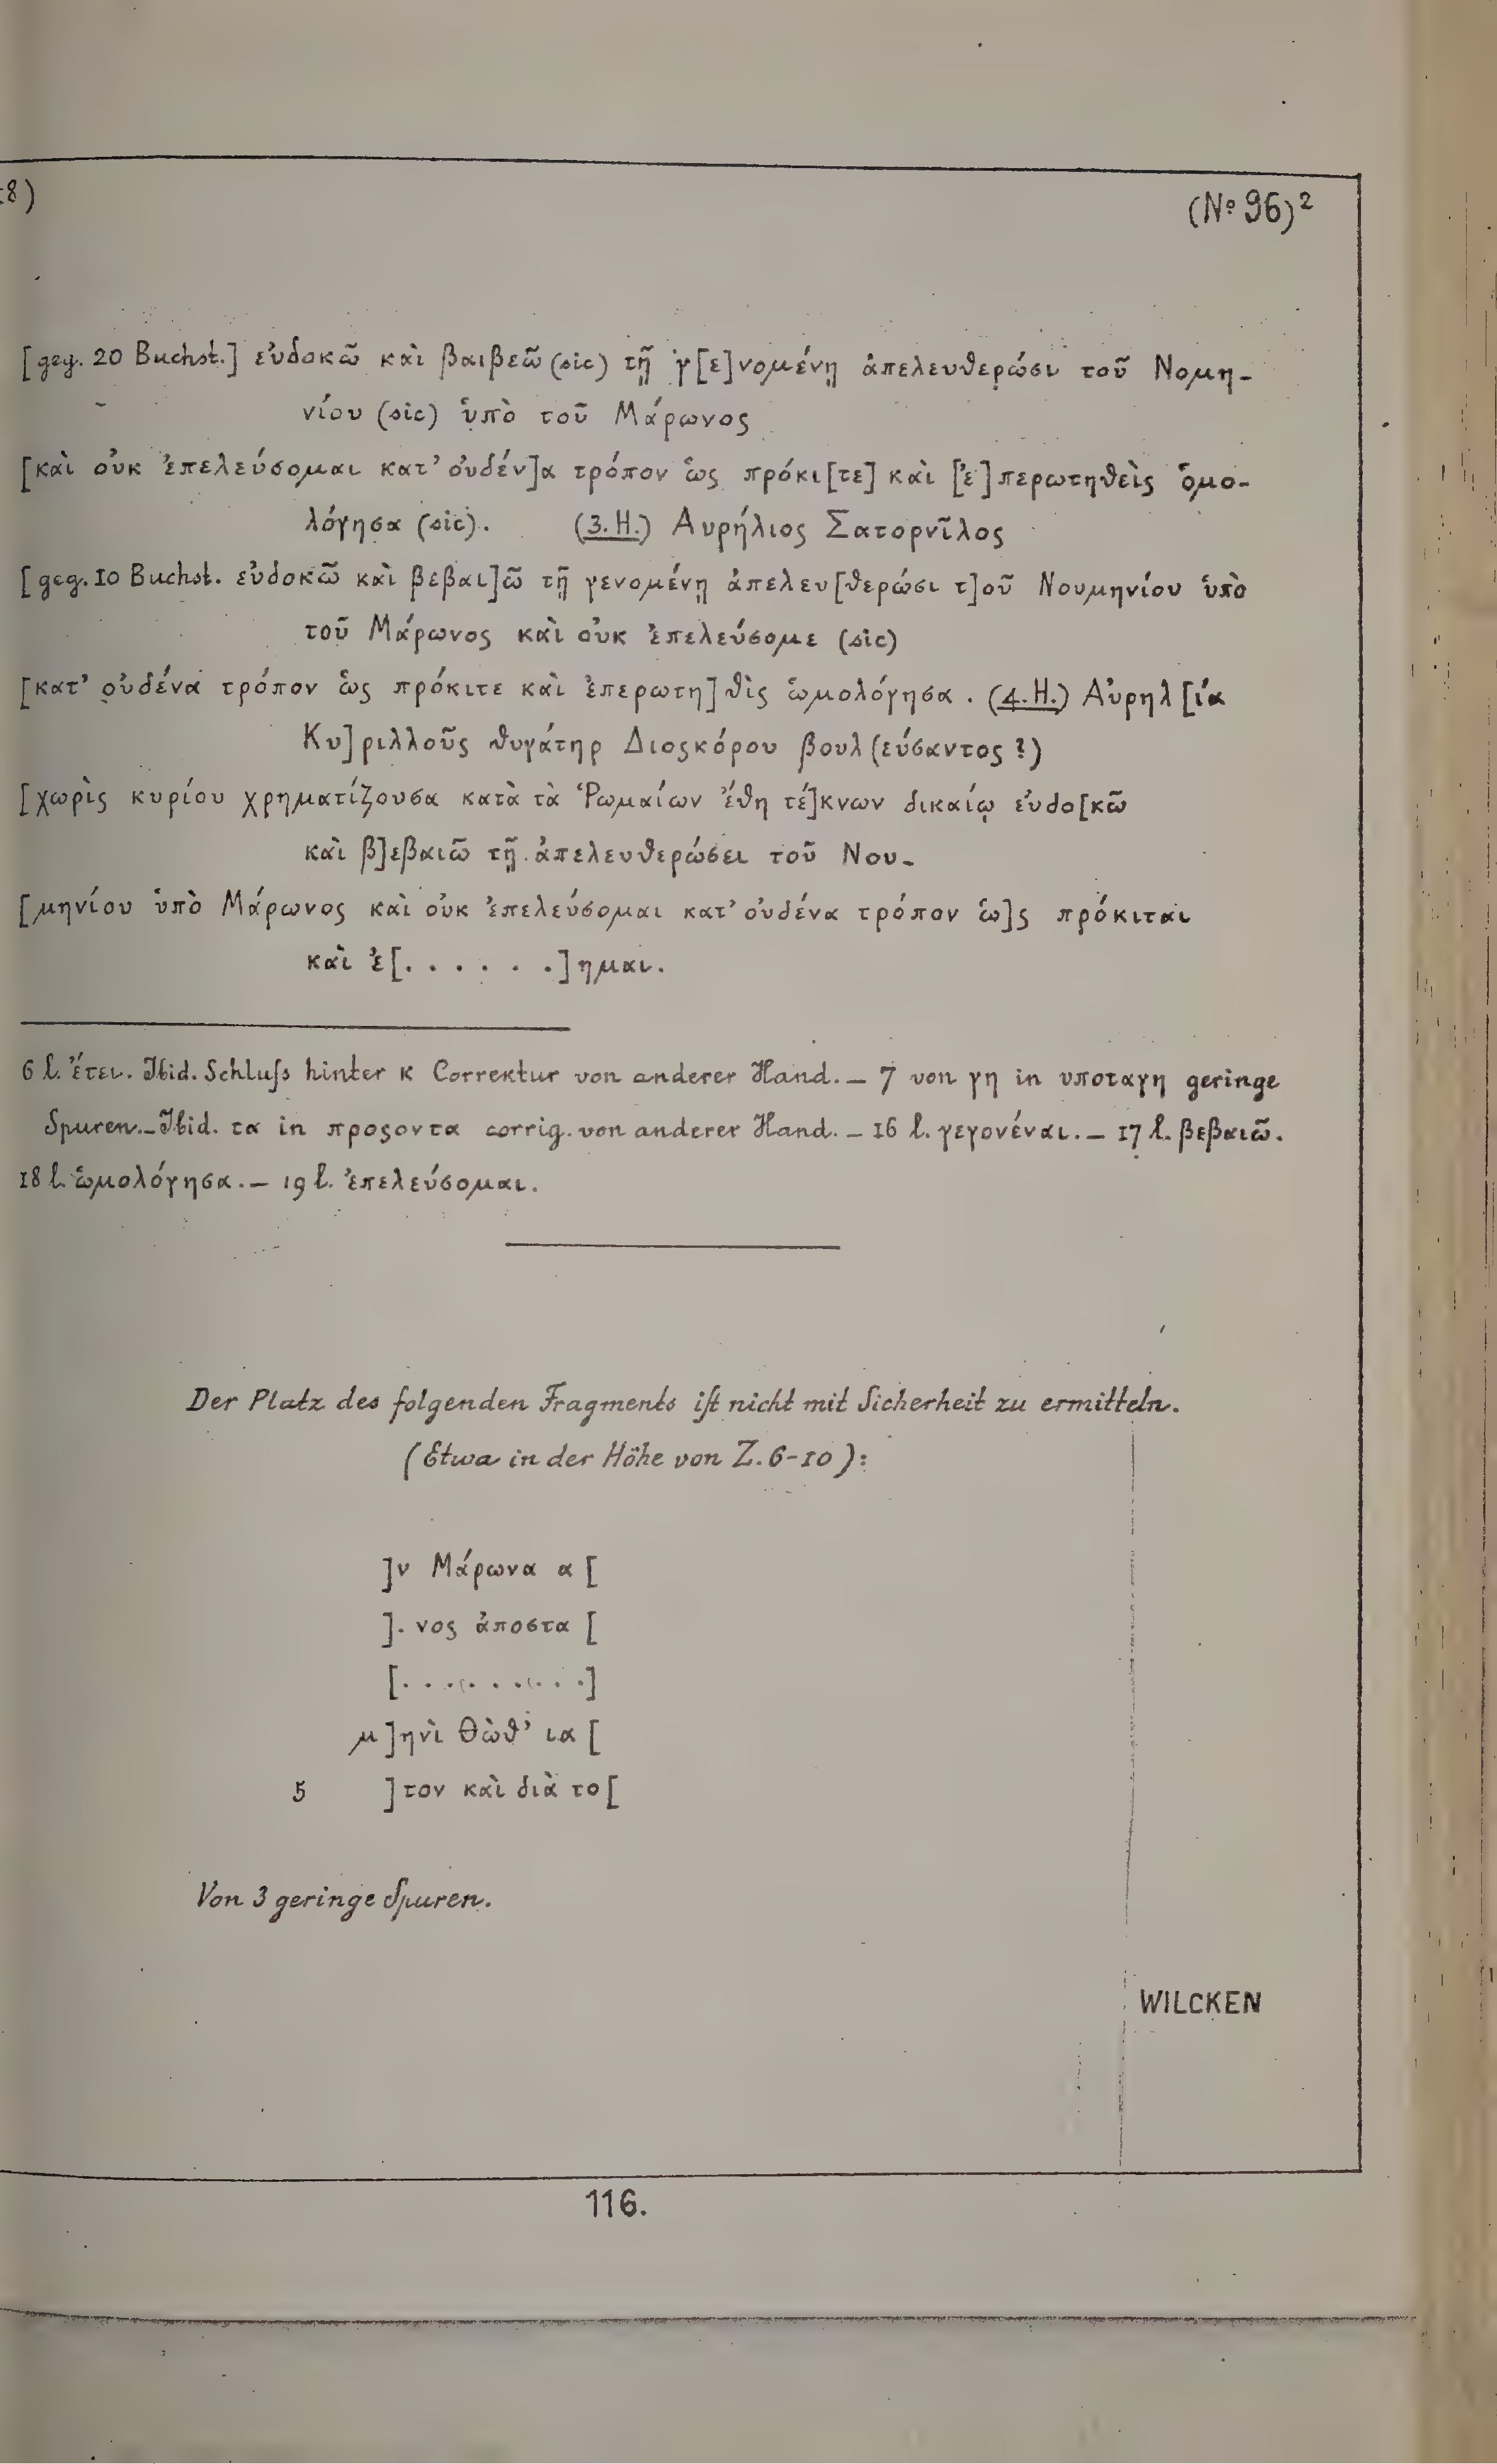 8)
(Nº 96)²
[geg. 20 Buchst.] εὐδοκῶ καὶ βαιβεῶ (sic) τῇ γ[ε]νομένῃ ἀπελευθερώσι τοῦ Νομη-
νίου (sic) ὑπὸ τοῦ Μάρωνος
[καὶ οὐκ ἐπελεύσομαι κατ' οὐδέν]α τρόπον ὡς πρόκι[τε] καὶ [ἐ]περωτηθεὶς ὁμο-
λόγησα (sic). (3. H.) Αυρήλιος Σατορνῖλος
[geg. 10 Buchst. εὐδοκῶ καὶ βεβαι]ῶ τῇ γενομένῃ ἀπελευ[θερώσι τ]οῦ Νουμηνίου ὑπὸ
τοῦ Μάρωνος καὶ οὐκ ἐπελεύσομε (sic)
[κατ' οὐδένα τρόπον ὡς πρόκιτε καὶ ἐπερωτη]θὶς ὡμολόγησα. (4. H.) Αὐρηλ[ία
Κυ]ριλλοῦς θυγάτηρ Διοςκόρου βουλ(εύσαντος?)
[χωρὶς κυρίου χρηματίζουσα κατὰ τὰ Ῥωμαίων ἔθη τέ]κνων δικαίῳ εὐδο[κῶ
καὶ β]εβαιῶ τῇ ἀπελευθερώσει τοῦ Νου-
[μηνίου ὑπὸ Μάρωνος καὶ οὐκ ἐπελεύσομαι κατ' οὐδένα τρόπον ὡ]ς πρόκιται
καὶ ἐ[. . . . . .]ημαι.
6 l. ἔτει. Ibid. Schluſs hinter κ Correktur von anderer Hand. – 7 von γη in υποταγη geringe
Spuren. – Ibid. τα in προςοντα corrig. von anderer Hand. – 16 l. γεγονέναι. – 17 l. βεβαιῶ.
18 l. ὡμολόγησα. – 19 l. ἐπελεύσομαι.
Der Platz des folgenden Fragments iſt nicht mit Sicherheit zu ermitteln.
(Etwa in der Höhe von Z. 6-10):
]ν Μάρωνα α[
]. νος ἀποστα[
[. . . . . . . . .]
μ]ηνὶ Θὼθ' ια[
5 ]τον καὶ διὰ το[
Von 3 geringe Spuren.
WILCKEN
116.